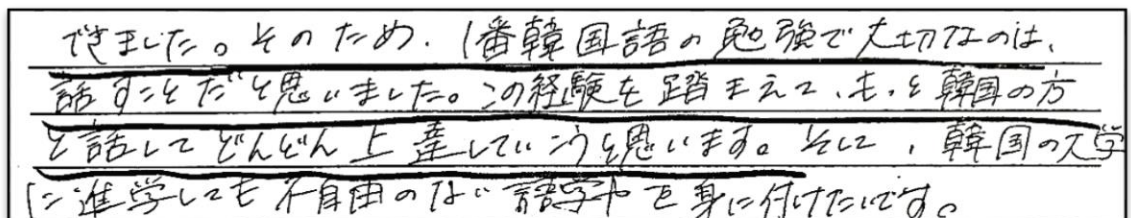 できました。そのため、1番韓国語の勉強で大切なのは、
話すことだと思いました。この経験を踏まえて、もっと韓国の方
と話してどんどん上達していこうと思います。そして、韓国の大学
に進学しても不自由のない語学力を身に付けたいです。